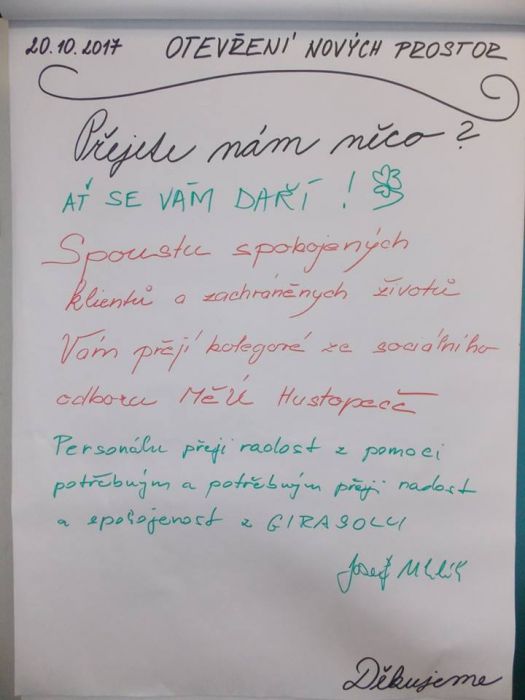 20.10.2017 OTEVŘENÍ NOVÝCH PROSTOR
Přejete nám něco?
AŤ SE VÁM DAŘÍ!
Spoustu spokojených
klientů a zachráněných životů
Vám přejí kolegové ze sociálního
odboru MěÚ Hustopeče
Personálu přeji radost z pomoci
potřebným a potřebným přeji radost
a spokojenost z GIRASOLU
Josef
Děkujeme